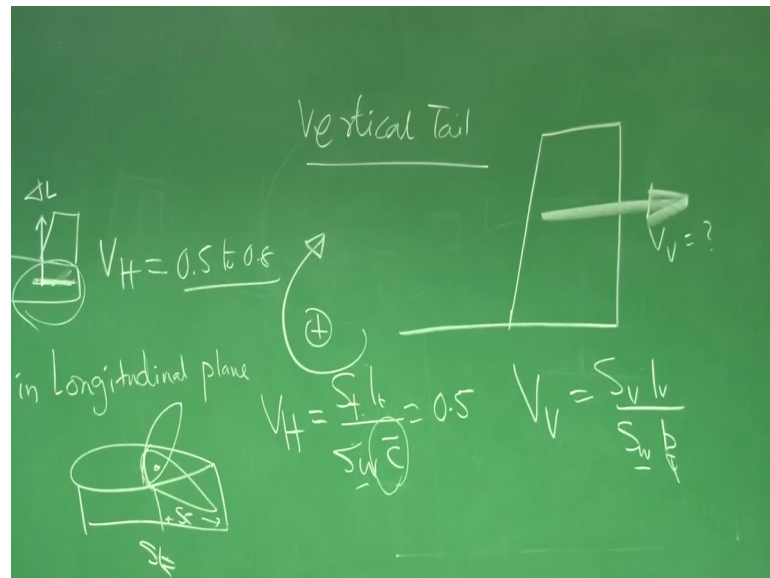 Vertical Tail
ΔL
V_H = 0.5 to 0.8
V_V = ?
+
in Longitudinal plane
V_H = S_t l_t / S_w c̄ = 0.5
V_V = S_v l_v / S_w b